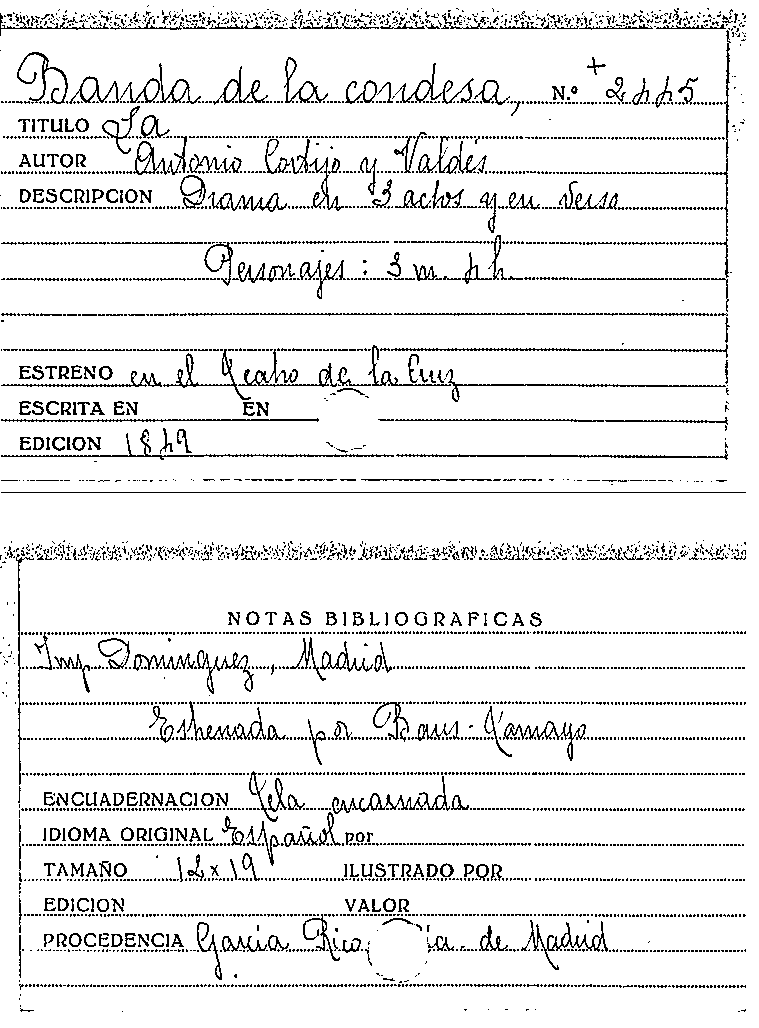 Banda de la condesa, N.º + 2445
TITULO La
AUTOR Antonio Cortijo y Valdés
DESCRIPCION Drama en 3 actos y en verso
Personajes: 3 m. 4 h.
ESTRENO en el Teatro de la Cruz
ESCRITA EN EN
EDICION 1849
NOTAS BIBLIOGRAFICAS
Imp Dominguez, Madrid
Estrenada por Baus-Tamayo
ENCUADERNACION Tela encarnada
IDIOMA ORIGINAL Español por
TAMAÑO 12x19 ILUSTRADO POR
EDICION VALOR
PROCEDENCIA García Rico, ia. de Madrid